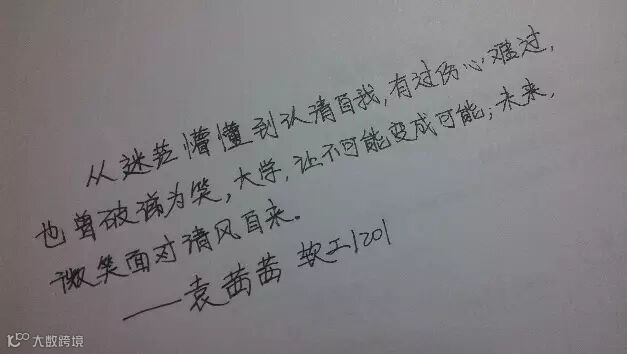 从迷茫懵懂到认清自我,有过伤心难过,
也曾破涕为笑,大学,让不可能变成可能;未来,
微笑面对清风自来.
——袁茜茜 软工1201
大数跨境